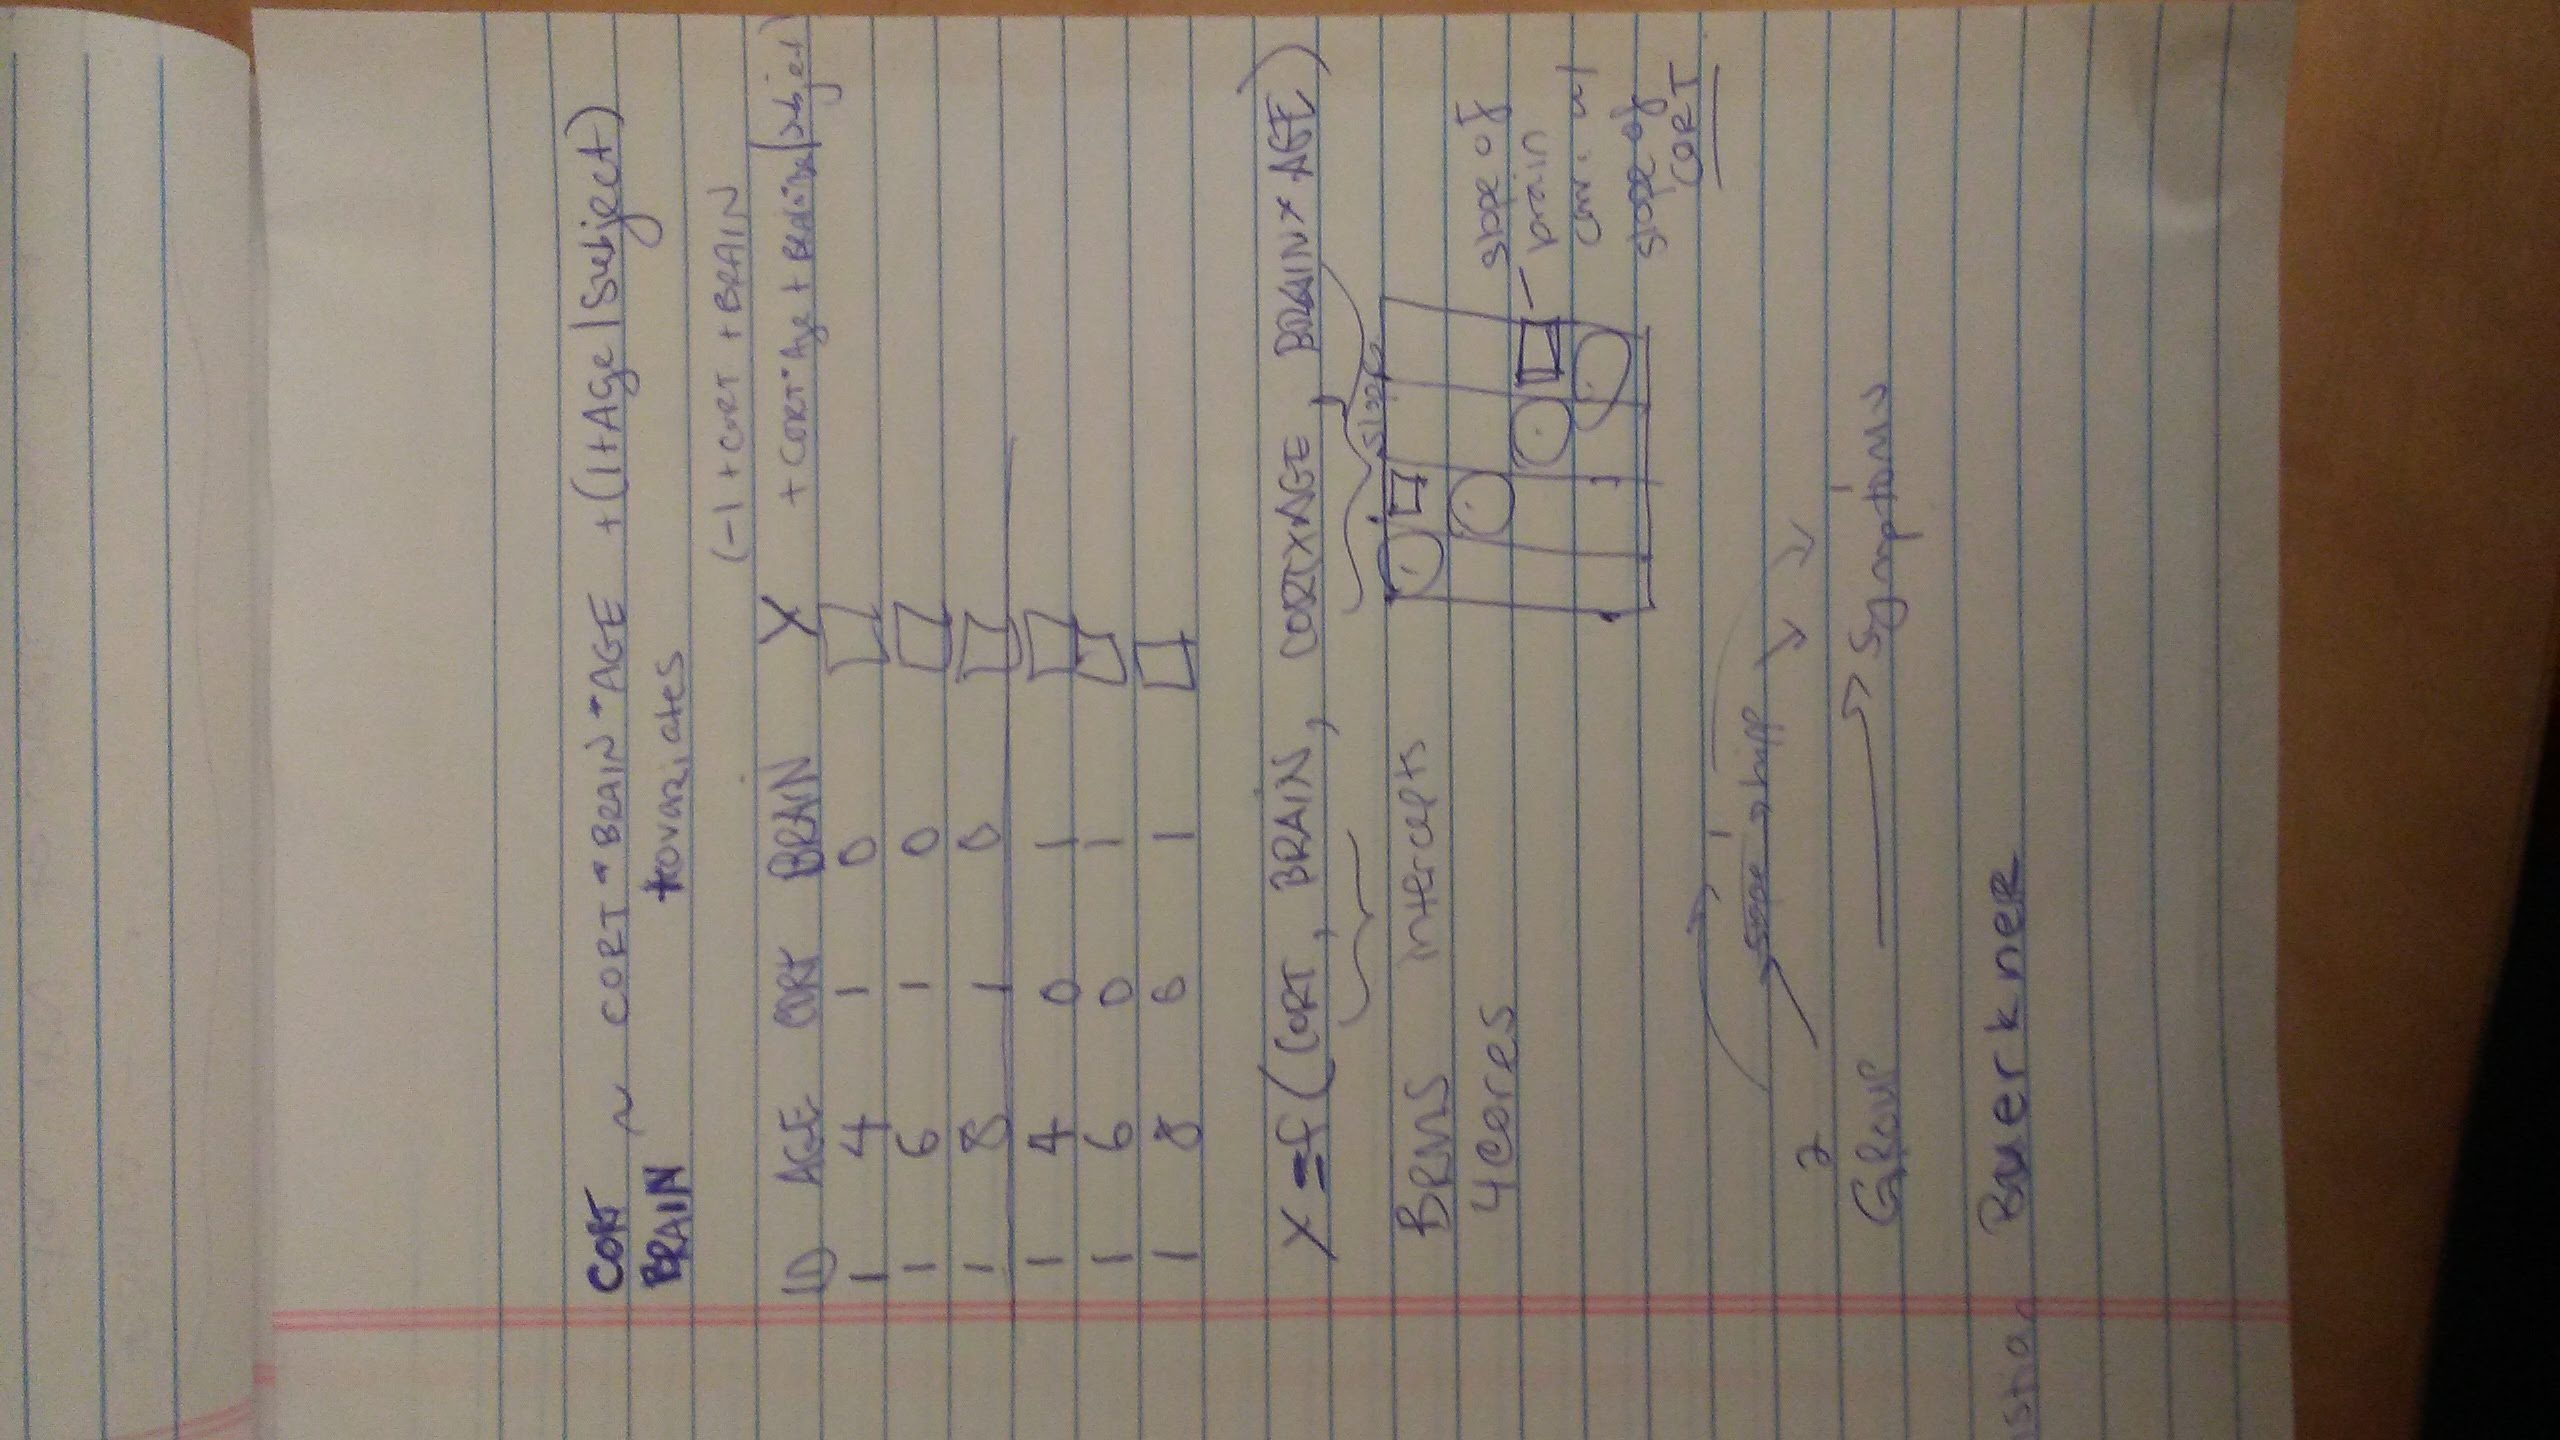 CORT
BRAIN ~ CORT * BRAIN * AGE + (1+Age | Subject)
+covariates
(-1 + CORT + BRAIN
+ CORT*Age + BRAIN*Age | Subject)
ID AGE CORT BRAIN Y
1 4 1 0
1 6 1 0
1 8 1 0
1 4 0 1
1 6 0 1
1 8 0 1
Y = f (CORT, BRAIN, CORT×AGE, BRAIN×AGE)
intercepts slopes
BRMS
4 cores
slope of
brain
corr. w/
slope of
CORT
slope → hipp
2
GROUP → Symptoms
Buerkner